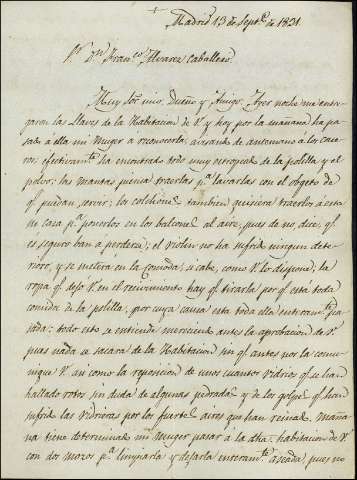 Madrid 13 de Septe. de 1831
Sr. Dn. Franco. Alvarez Caballero
Muy Sor. mio, Dueño y Amigo: Ayer noche me entre
garon las Llaves de la Habitacion de V. y hoy por la mañana ha pa
sado á ella mi Muger a reconocerla, avisando de antemano á los case
ros; efectivamte. ha encontrado todo muy estropeado de la polilla y el
polvo: las mantas piensa traerlas pa. lavarlas con el objeto de
q. puedan servir; los colchones tambien quisiera traerlos á esta
mi casa pa. ponerlos en los balcones al aire, pues de no dice, q.
es seguro han á perderse; el violin no ha sufrido ningun dete
rioro, y se meterá en la Comoda, si cabe, como V. lo dispone; la
ropa q. dejó V. en el recivimiento hay q. tirarla por q. está toda
comida de la polilla, por cuya causa está toda ella enteramte. pa
sada: todo esto se entiende mereciendo antes la aprobacion de V.
pues nada se sacará de la Habitacion sin q. antes por lo comu
nique V. asi como la reposicion de unos cuantos vidrios q. se han
hallado rotos sin duda de algunas pedradas y de los golpes q. han
sufrido las vidrieras por los fuertes aires que han reinado. Maña
na tiene determinado mi Muger pasar á la dha. habitacion de V.
con dos mozos pa. limpiarla y dejarla enteramte. aseada, pues no